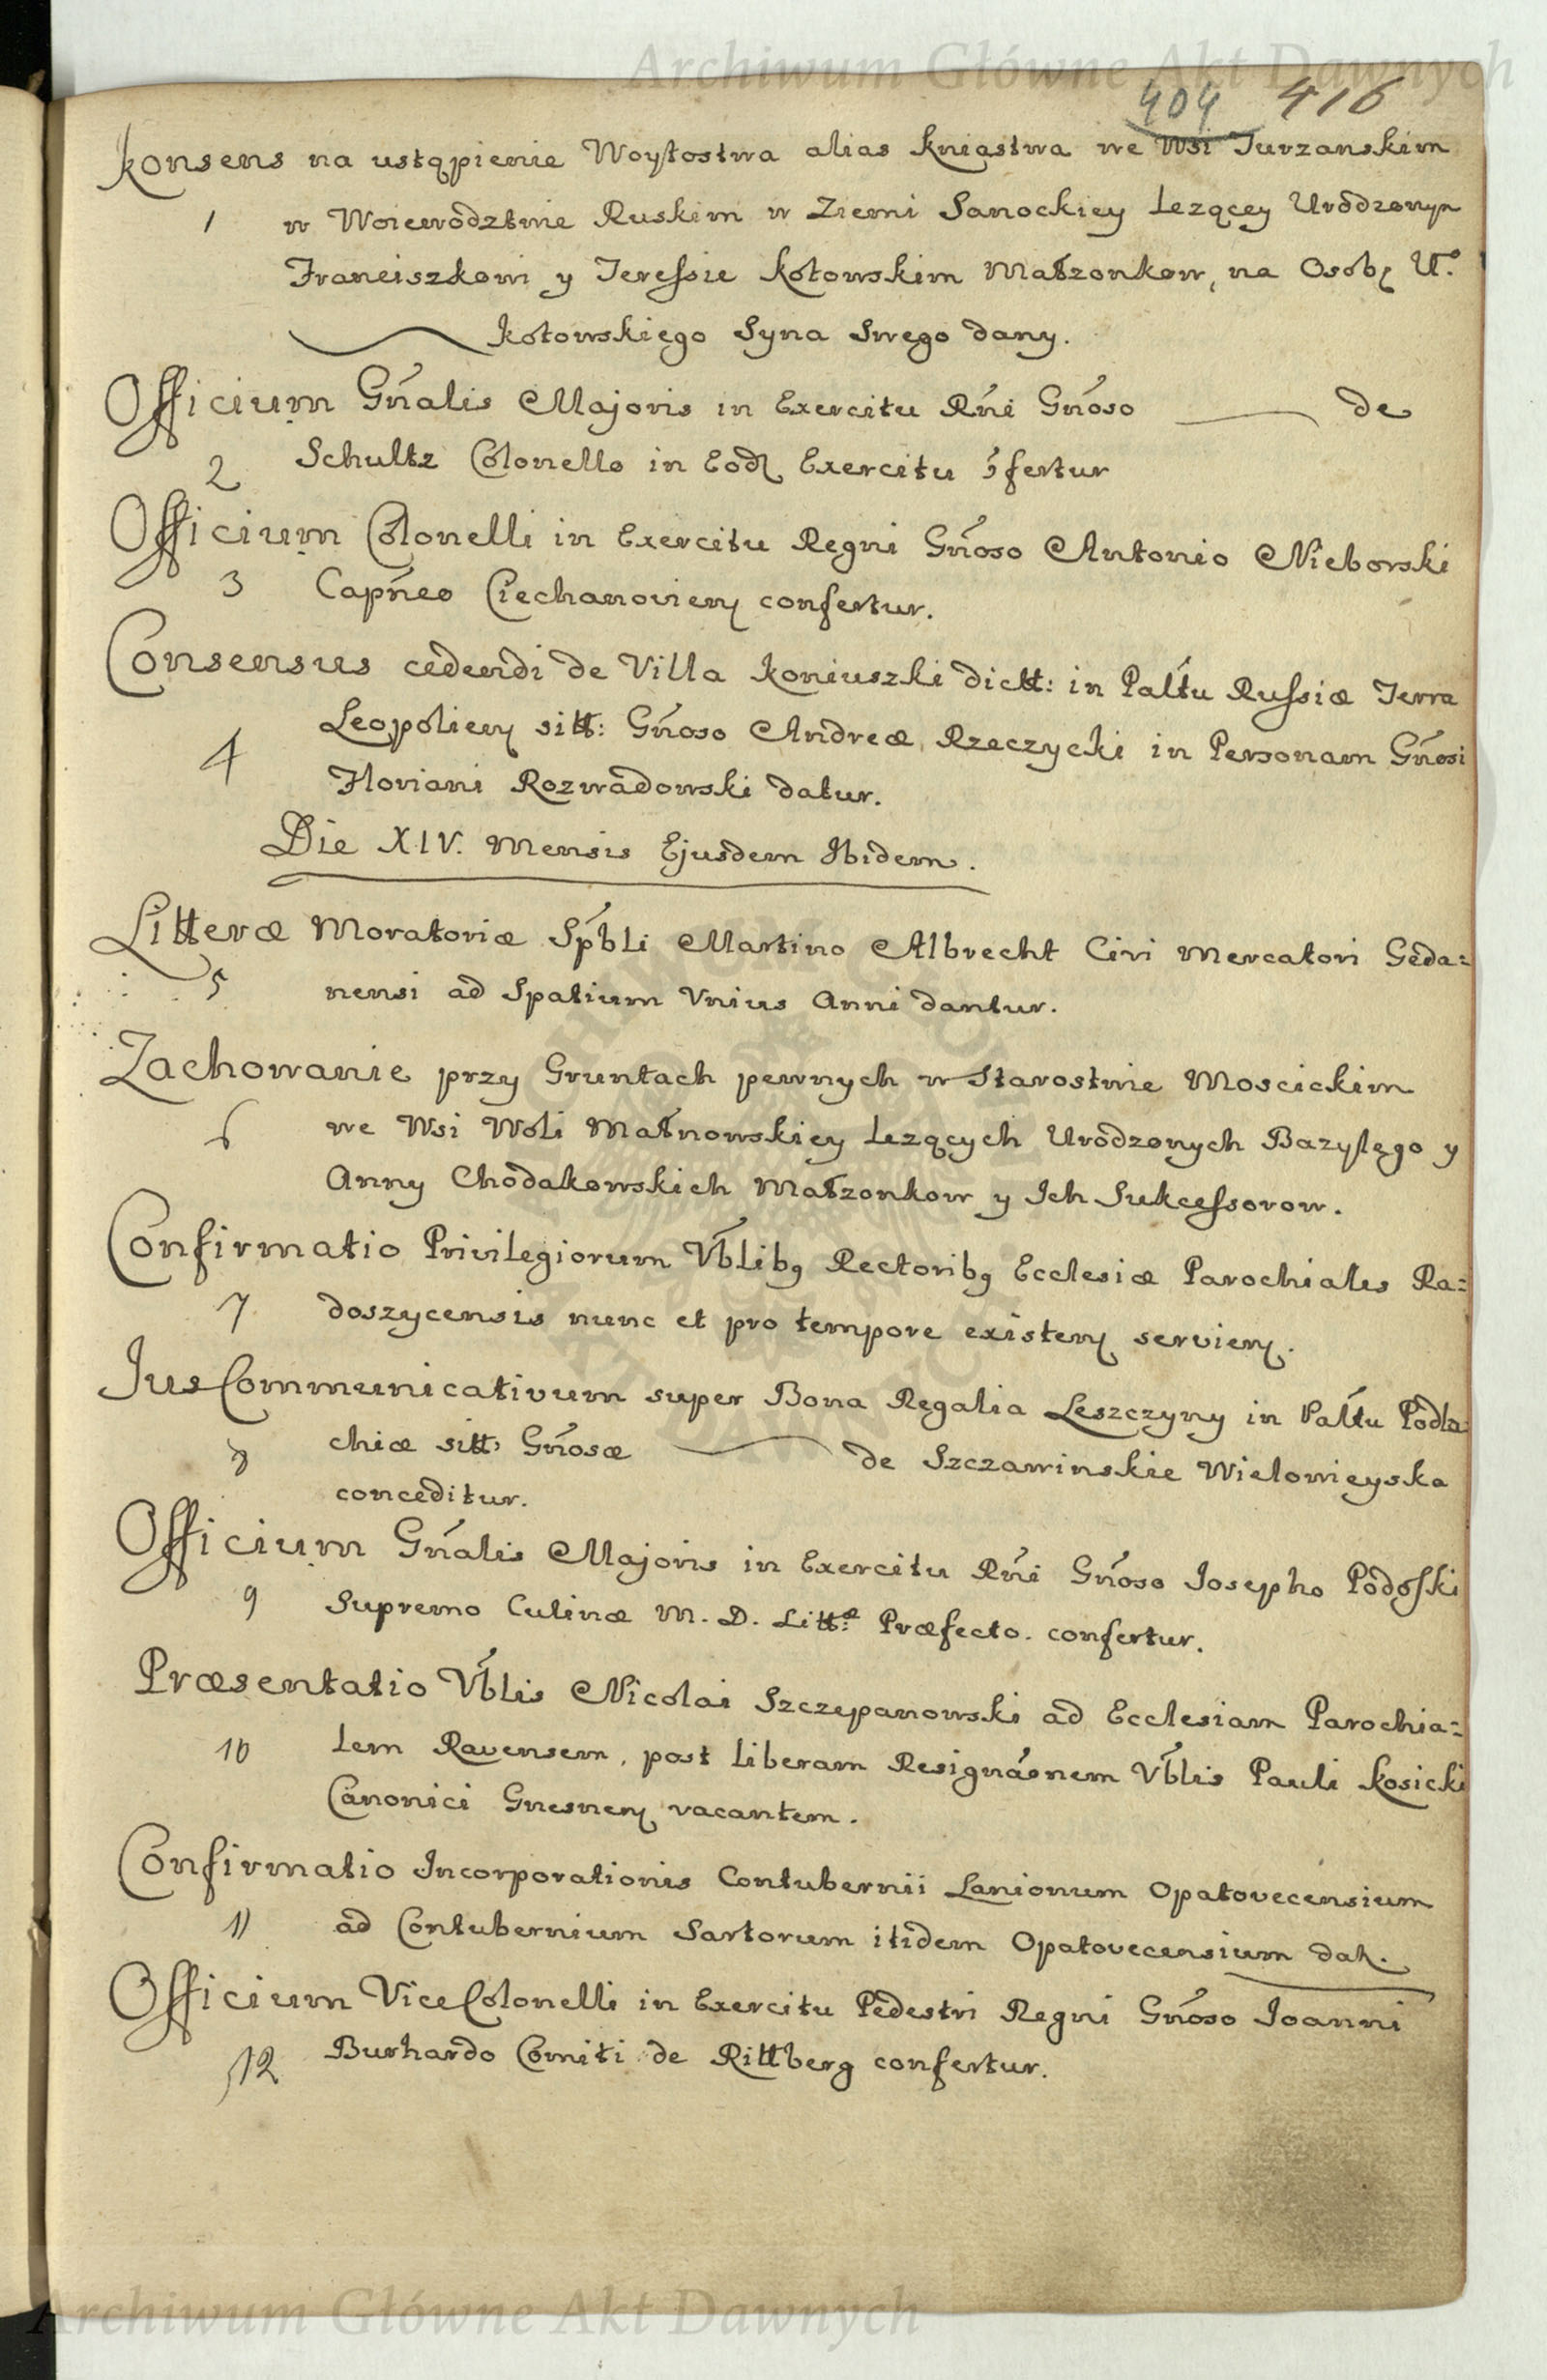 Archiwum Główne Akt Dawnych
404 416
Konsens na ustąpienie Woytostwa alias Kniastwa we Wsi Turzanskim
1 w Woiewodztwie Ruskim w Ziemi Sanockiey Lezącey Urodzonym
Franciszkowi y Teressie Kotowskim Małzonkow, na Osobę U.
Kotowskiego Syna Swego dany.
Officium Gńalis Majoris in Exercitu Rńi Gńoso de
2 Schultz Colonello in Eodꝫ Exercitu ꝯfertur
Officium Colonelli in Exercitu Regni Gńoso Antonio Nieborski
3 Capńeo Ciechanovienꝫ confertur.
Consensus cedendi de Villa Koniuszki dictt: in Palťu Russiæ Terra
4 Leopolienꝫ sitt: Gńoso Andreæ Rzeczycki in Personam Gńosi
Floriani Rozwadowski datur.
Die XIV. Mensis Ejusdem Ibidem.
Litteræ Moratoriæ Sṕbli Martino Albrecht Civi Mercatori Geda=
5 nensi ad Spatium Vnius Anni dantur.
Zachowanie przy Gruntach pewnych w Starostwie Moscickim
6 we Wsi Woli Małnowskiey Lezących Urodzonych Bazylego y
Anny Chodakowskich Małzonkow y Ich Sukcessorow.
Confirmatio Privilegiorum Vb́libꝫ Rectoribꝫ Ecclesiæ Parochiales Ra=
7 doszycensis nunc et pro tempore existenꝫ servienꝫ.
Jus Communicativum super Bona Regalia Leszczyny in Palťu Podla
8 chiæ sitt: Gńosæ de Szczawinskie Wielowieyska
conceditur.
Officium Gńalis Majoris in Exercitu Rńi Gńoso Josepho Podoski
9 Supremo Culinæ M. D. Litt:æ Præfecto. confertur.
Præsentatio Vb́lis Nicolai Szczepanowski ad Ecclesiam Parochia=
10 lem Ravensem, post Liberam Resignaónem Vb́lis Pauli Kosicki
Canonici Gnesnenꝫ vacantem.
Confirmatio Incorporationis Contubernii Lanionum Opatovecensium
11 ad Contubernium Sartorum itidem Opatovecensium datꝫ.
Officium ViceColonelli in Exercitu Pedestri Regni Gńoso Joanni
12 Burhardo Comiti de Rittberg confertur.
Archiwum Główne Akt Dawnych